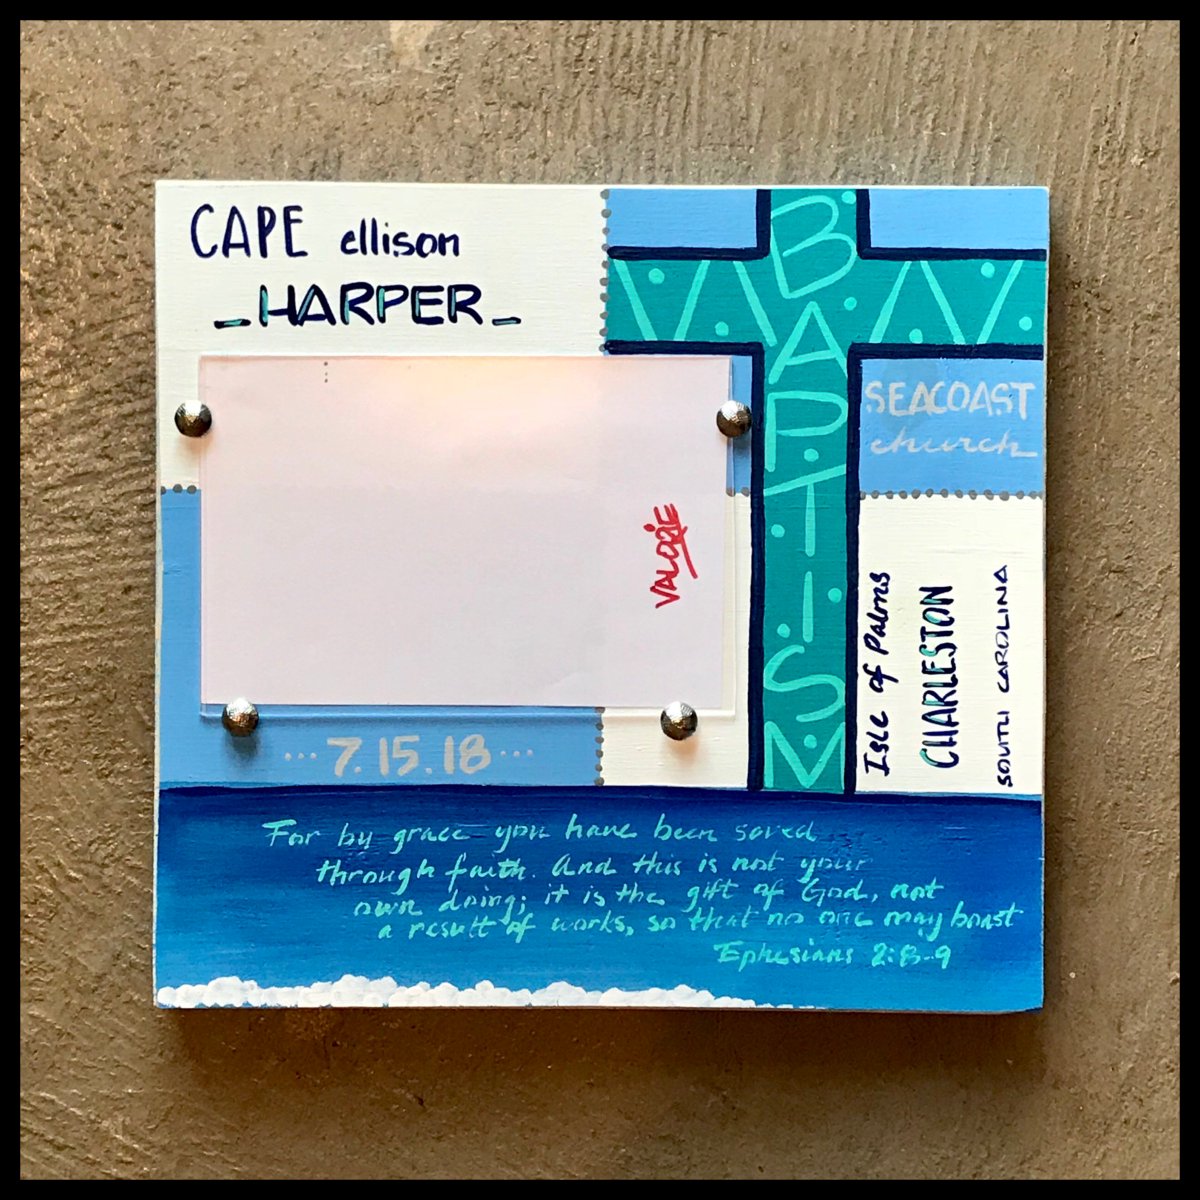 CAPE ellison
HARPER
BAPTISM
SEACOAST
church
VALORIE
Isle of Palms
CHARLESTON
SOUTH CAROLINA
...7.15.18...
For by grace you have been saved
through faith. And this is not your
own doing; it is the gift of God, not
a result of works, so that no one may boast
Ephesians 2:8-9